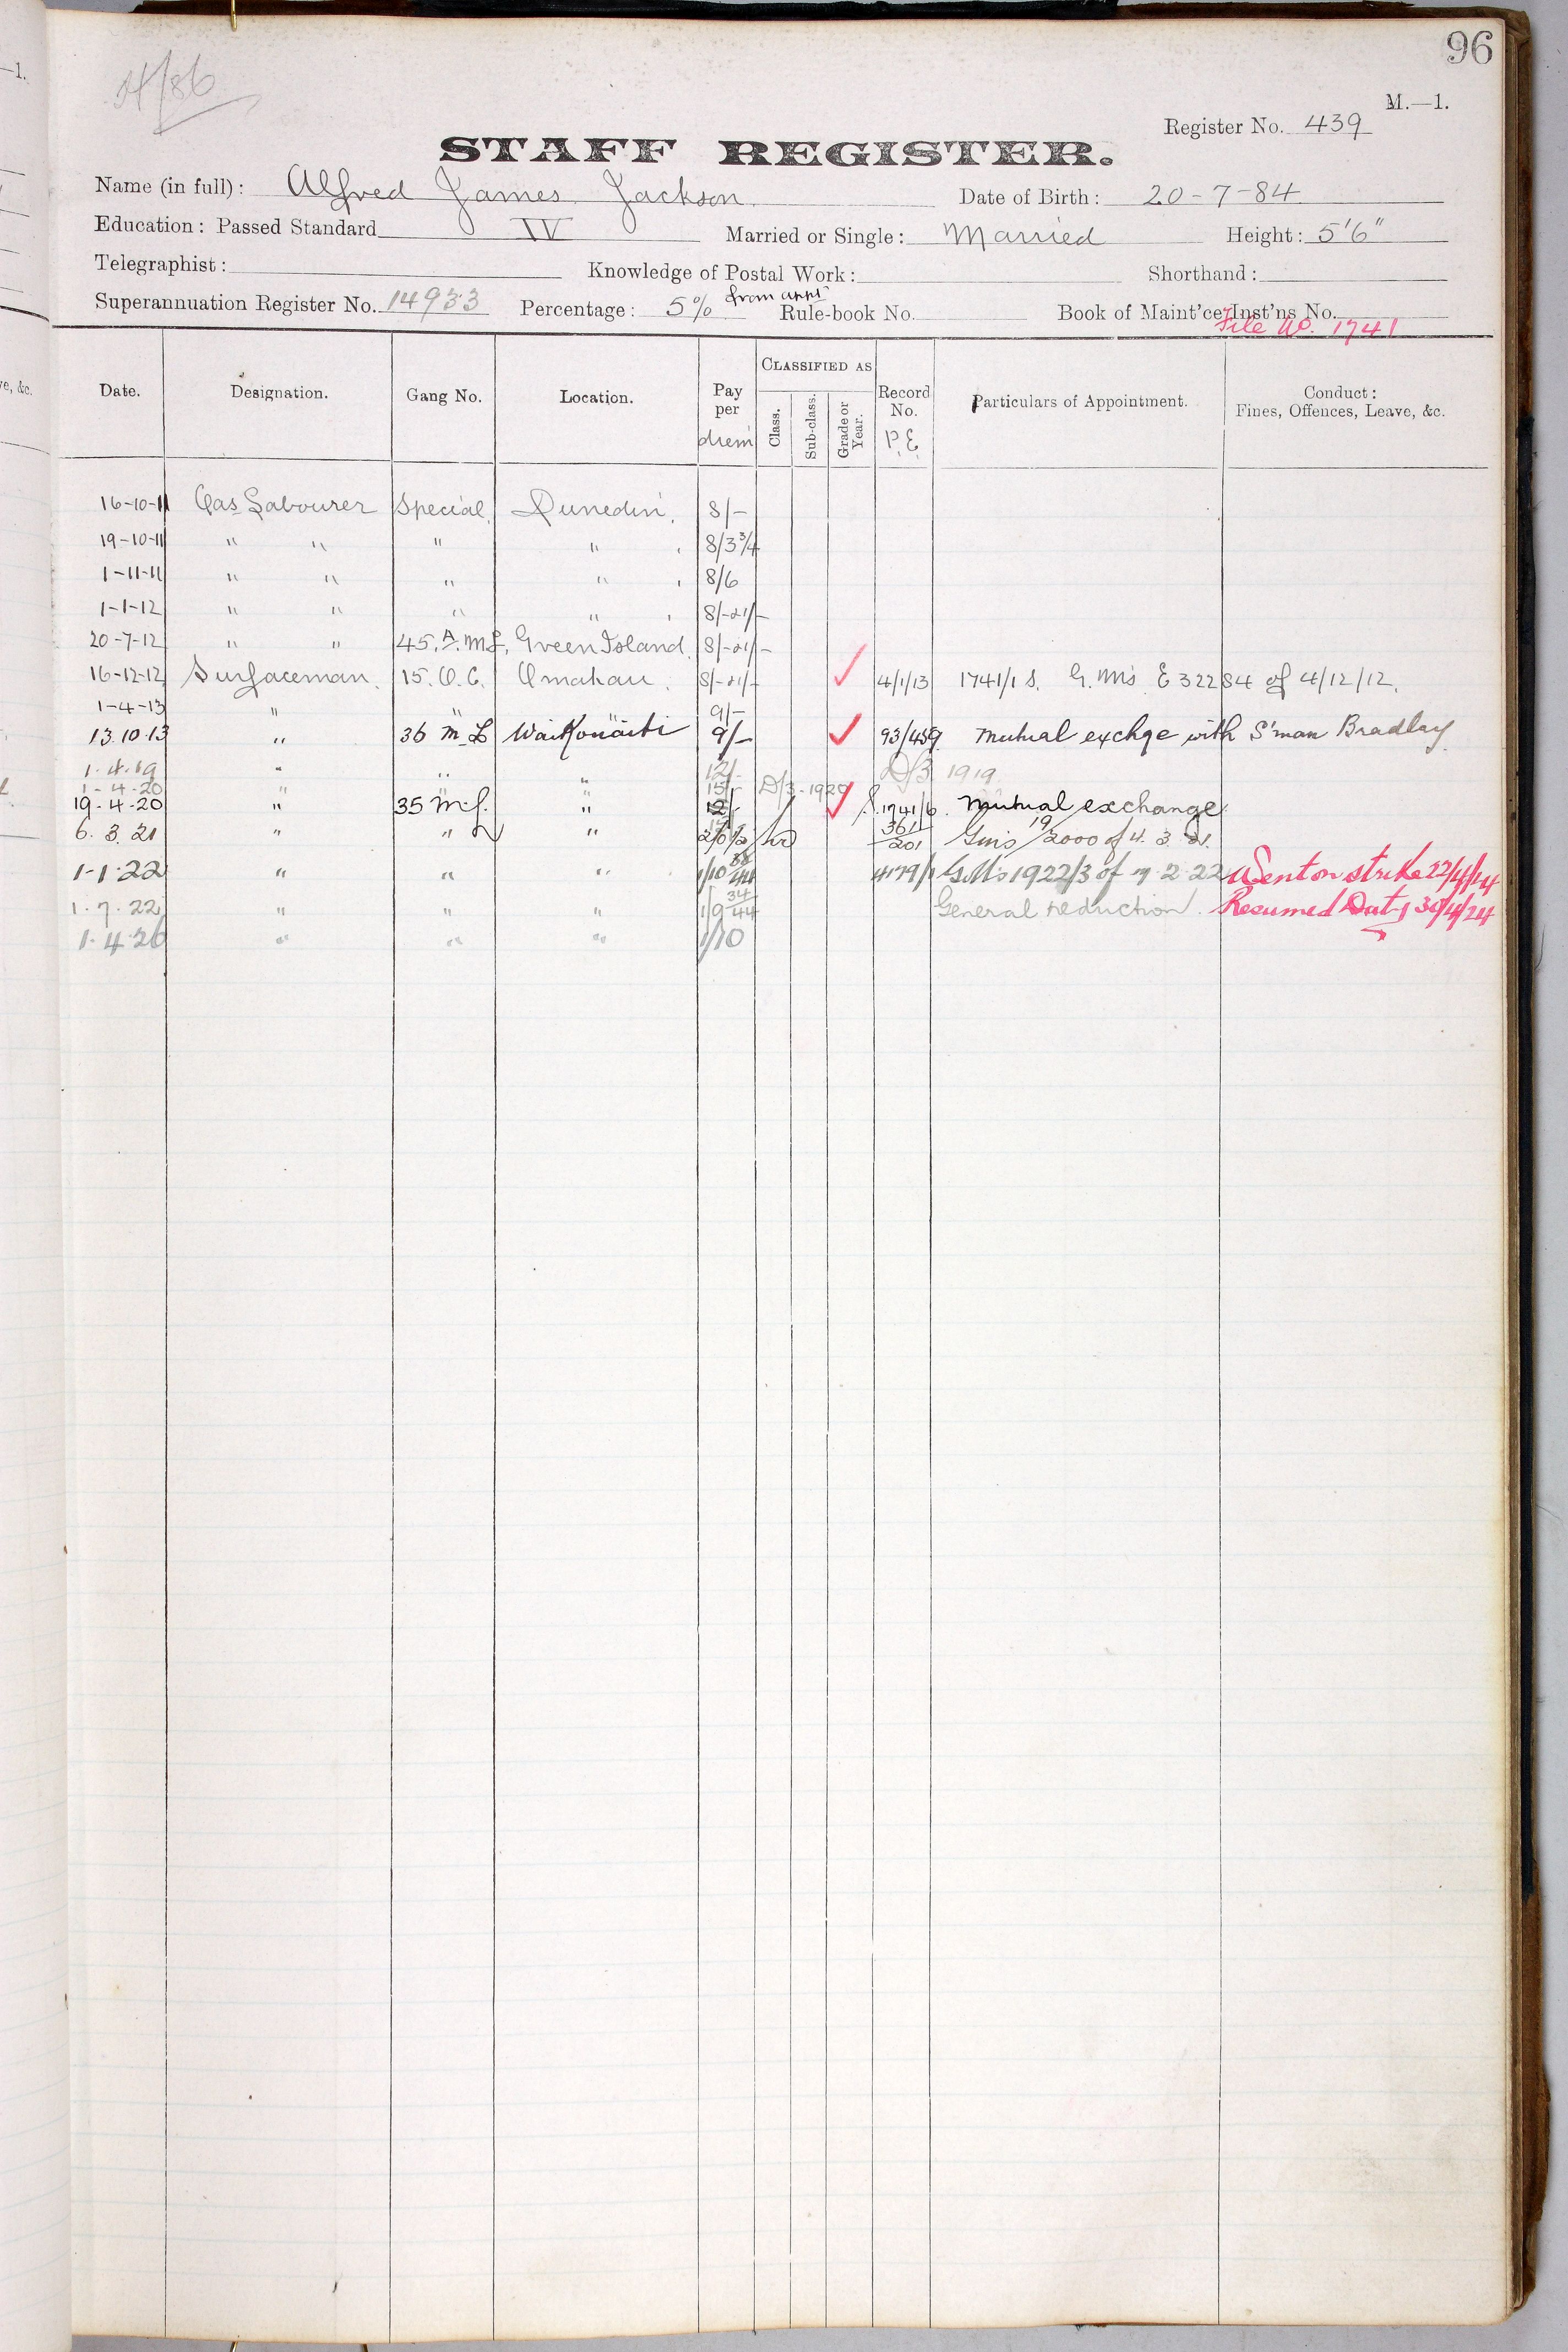 96
M.—1.
Register No. 439
STAFF REGISTER.
Name (in full): Alfred James Jackson Date of Birth: 20-7-84
Education: Passed Standard IV Married or Single: Married Height: 5'6"
Telegraphist: Knowledge of Postal Work: Shorthand:
Superannuation Register No. 14933 Percentage: 5% from appt Rule-book No. Book of Maint'ce Inst'ns No.
File No. 1741
Date. Designation. Gang No. Location. Pay per diem CLASSIFIED AS Class. Sub-class. Grade or Year. Record No. P.E. Particulars of Appointment. Conduct: Fines, Offences, Leave, &c.
16-10-11 Cas Labourer Special Dunedin 8/-
19-10-11 " " " " 8/3 3/4
1-11-11 " " " " 8/6
1-1-12 " " " "
20-7-12 " " 45.A.ML. Green Island
16-12-12 Surfaceman 15.O.C. Omakau 4/1/13 1741/1 S. G.M's E 32284 of 4/12/12.
1-4-13 " " 9/-
13.10.13 " 36 M L Waikouaiti 9/- 93/459 Mutual exchge with S'man Bradley
1.4.19 " " " 12/- D/3 1919
1-4-20 " " " 15/- D/3-1920
19-4-20 " 35 M.L. " 1741/6 Mutual exchange
6.3.21 " " " 2/0 1/2 hr 361/201 Gm's 19/2000 of 4.3.21.
1-1-22 " " " 1/10 4179/1 GM's 1922/3 of 7.2.22 Went on strike 22/4/24
1.7.22 " " " 1/9 34/44 General reduction. Resumed Duty 30/4/24
1.4.26 " " " 1/10